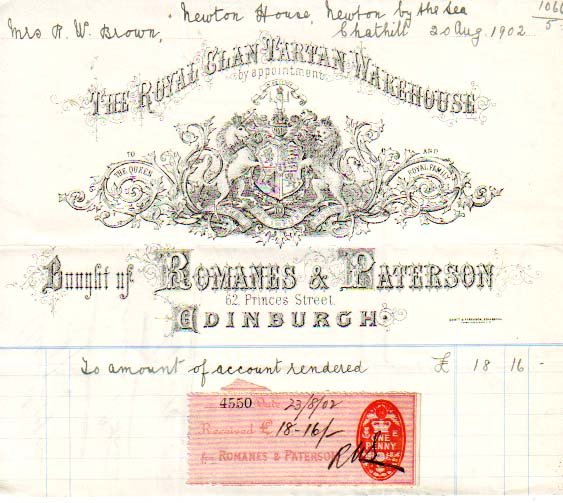 Newton House, Newton by the Sea
1060
5
Mrs R. W. Brown, Chathill 20 Aug. 1902
THE ROYAL CLAN TARTAN WAREHOUSE
by appointment
TO AND
THE QUEEN ROYAL FAMILY
Bought of ROMANES & PATERSON
62, Princes Street,
EDINBURGH
To amount of account rendered £ 18 16 -
4550 Date 23/8/02
Received £ 18-16/-
for ROMANES & PATERSON
ONE
PENNY